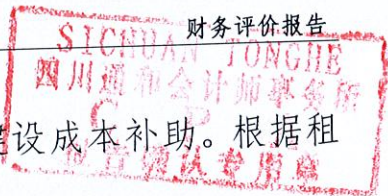 财务评价报告
SICHUAN TONGHE
四川通和会计师事务所
设成本补助。根据租